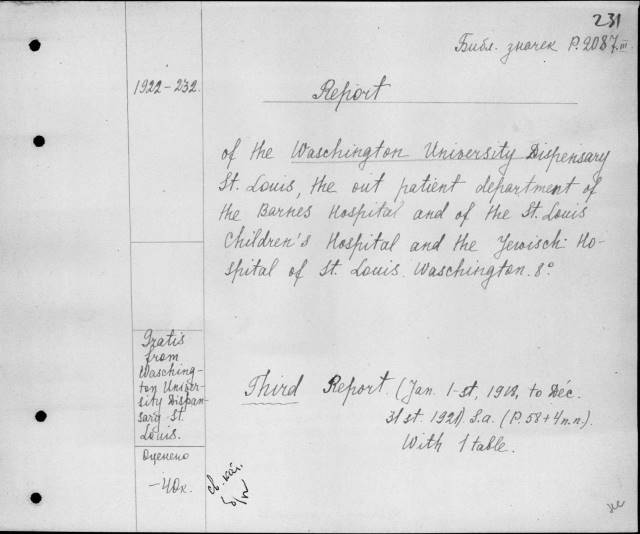 231
Библ. значек P.2087.III
1922-232.
Report
of the Waschington University Dispensary
St. Louis, the out patient department of
the Barnes Hospital and of the St. Louis
Children's Hospital and the Jewisch Ho-
spital of St. Louis. Waschington. 8°.
Gratis
from
Wasching-
ton Univer-
sity Dispan-
sary St.
Louis.
Third Report. (Jan. 1-st, 1918, to Déc.
31 st. 1921). S.a. (P. 58+4 n.n.).
With 1 table.
Оценено
-40к.
св. кат.